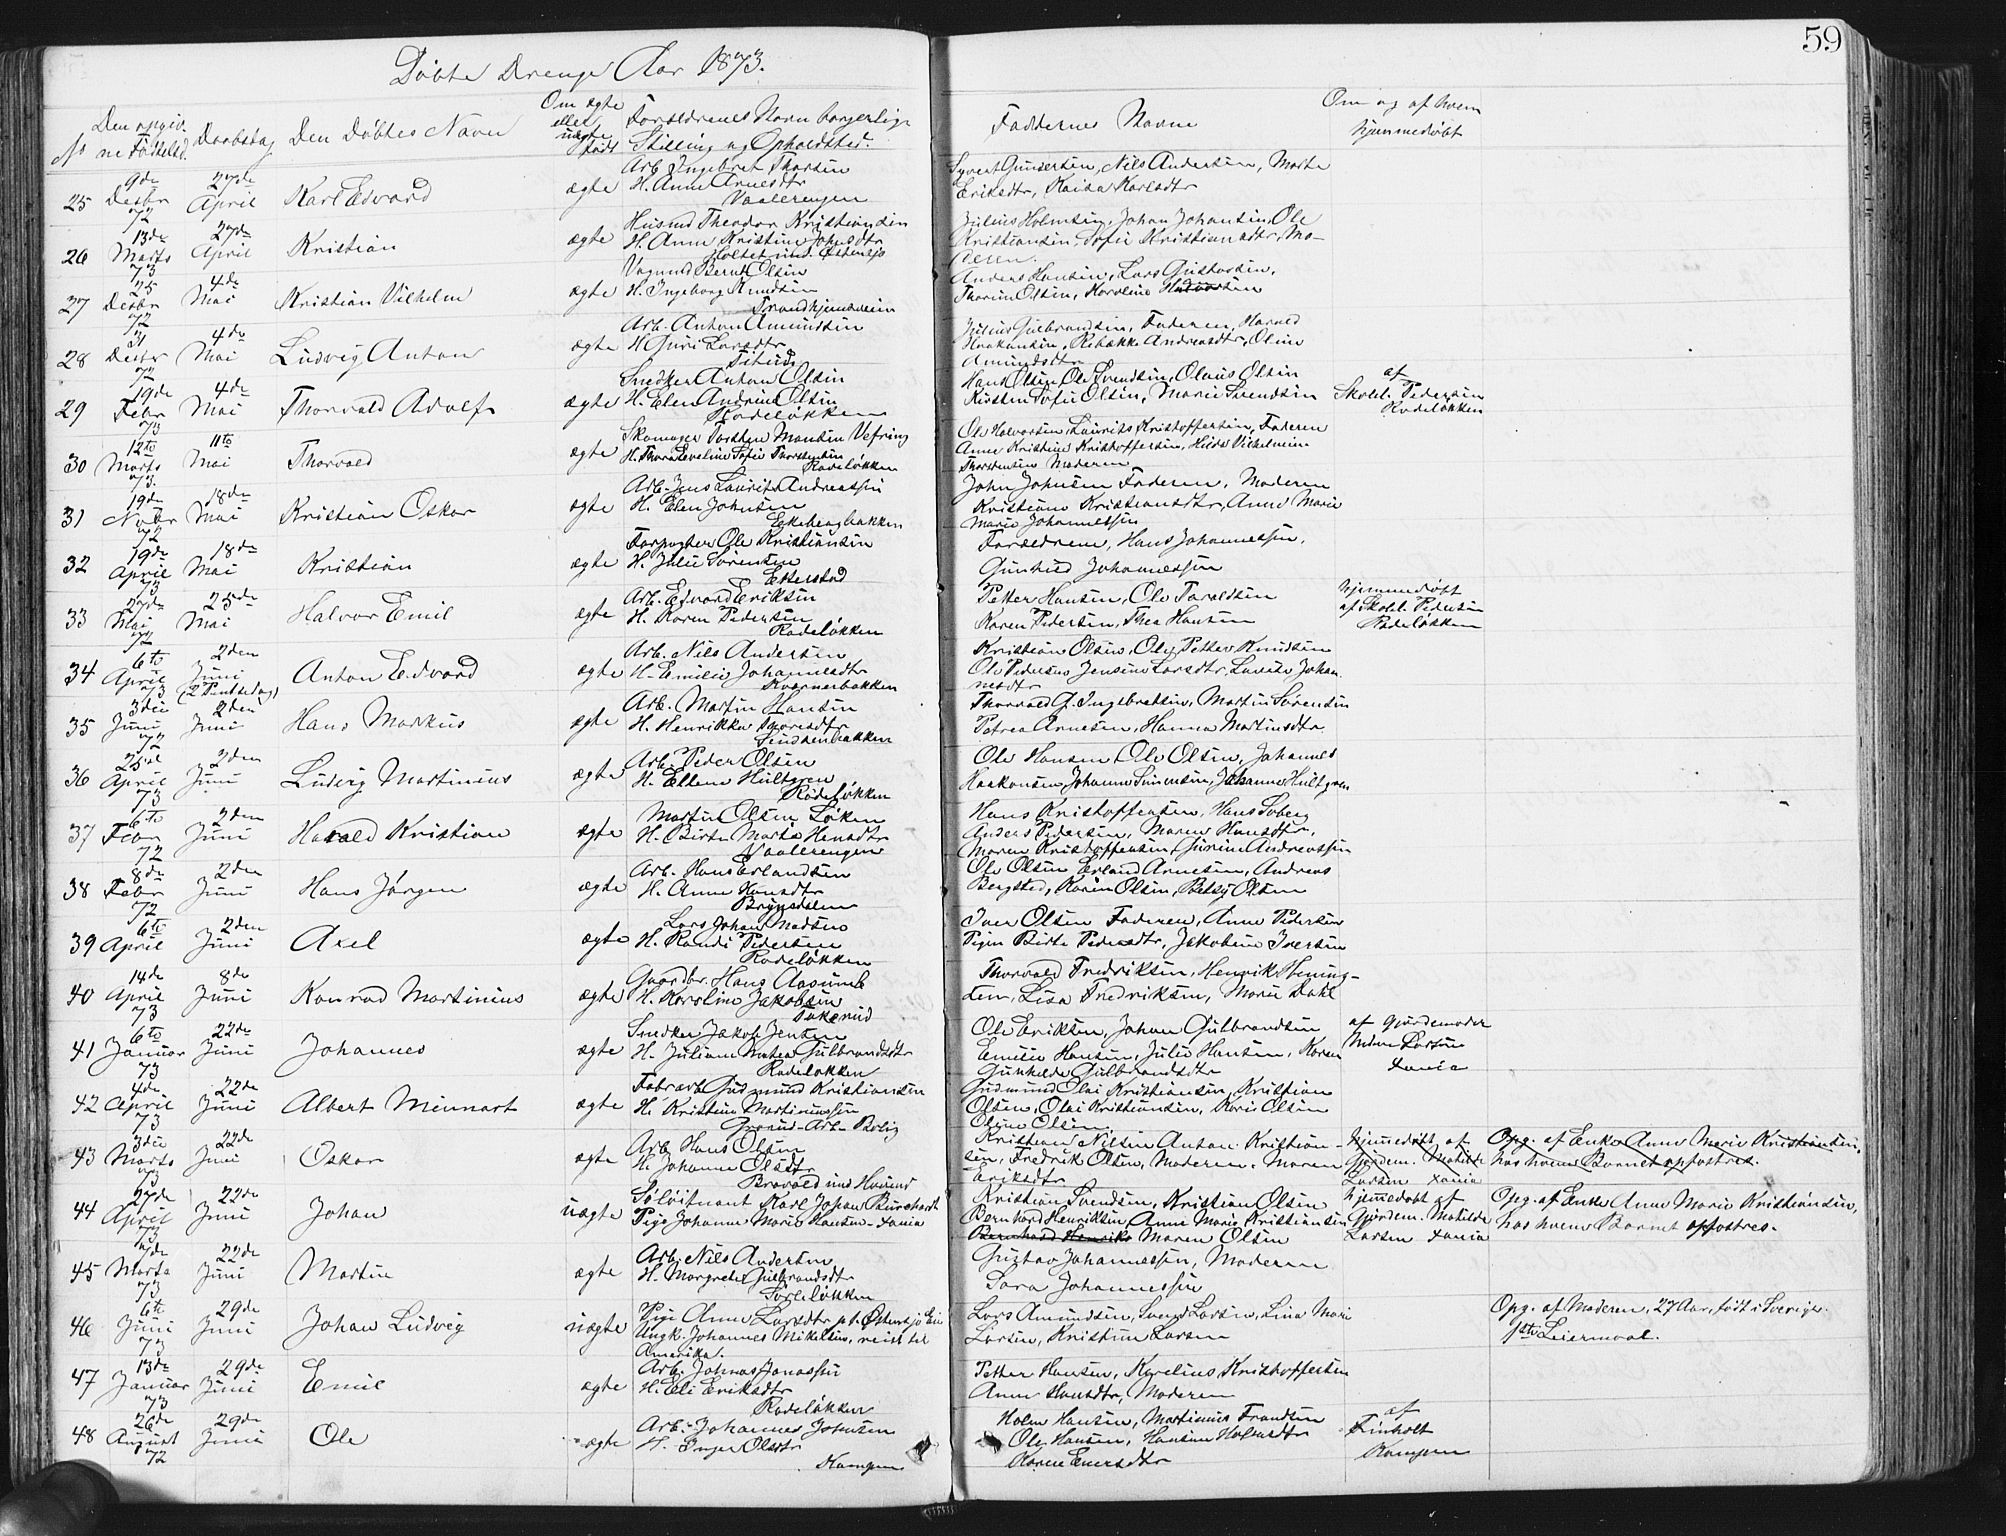 59
Döbte Drenge Aar 1873.
No
Den opgiv.
ne Födselsd.
Daabsdag
Den Döbtes Navn
Om ægte
eller
uægte
födt
Forældrenes Navn borgerlige
Stilling og Opholdsted.
Faddernes Navne
Om og af hvem
hjemmedöbt
25
9de
Desbr
72
27de
April
Karl Edvard
ægte
Arb. Ingebret Thorsen
H. Anne Arnesdtr
Vaalerengen
Syvert Gundersen, Nils Andersen, Marte
Eriksdtr, Kaisa Karlsdtr
26
13de
Marts
73
27de
April
Kristian
ægte
Husmd Theodor Kristiansen
H. Anne Kristine Johnsdtr
Holtet und. Østensjö
Julius Holmsen, Johan Johansen, Ole
Kristiansen, Sofie Kristiansdtr, Mo-
deren.
27
25
Desbr
72
4de
Mai
Kristian Vilhelm
ægte
Vognmd Bernt Olsen
H. Ingeborg Knudsen
Trondhjemsveien
Anders Hansen, Lars Gustavsen,
Thorine Olsen, Karoline Halvorsen
28
31
Desbr
72
4de
Mai
Ludvig Anton
ægte
Arb. Anton Amundsen
H Guri Larsdtr
Julius Gulbrandsen, Faderen, Harald
Haakonsen, Rebække Andreasdtr, Oline
Amundsdtr
29
19de
Febr
73
4de
Mai
Thorvald Adolf
ægte
Snedker Anton Olsen
H. Elen Andrine Olsen
Rodelökken
Hans Olsen, Ole Svendsen, Olaus Olsen
Kirsten Sofie Olsen, Marie Svendsen
af
Skolel. Pedersen
Rodelökken
30
12te
Marts
73.
11te
Mai
Thorvald
ægte
Skomager Torsten Monsen Vefring
H. Thora Eveline Sofie Thorstensen
Rodelökken
Ole Halvorsen, Laurits Kristoffersen, Faderen
Anne Kristine Kristoffersen, Hilda Vilhelmine
Thorstensen Moderen
31
19de
Novbr
72
18de
Mai
Kristian Oskar
ægte
Arb. Jens Laurits Andreassen
H. Elen Johnsen
Ekebergbakken
John Johnsen Faderen, Moderen
Kristiane Kristiansdtr, Anne Marie
Marie Johannessen
32
19de
April
73
18de
Mai
Kristian
ægte
Forpagter Ole Kristiansen
H. Julie Sörensen
Etterstad
Forældrene, Hans Johannessen,
Gunhild Johannessen
33
27de
Mai
72
25de
Mai
Halvor Emil
ægte
Arb. Edvard Eriksen
H. Karen Pedersen
Rodelökken
Petter Hansen, Ole Taraldsen
Karen Pedersen, Thea Hansen
hjemmedöbt
af Skolel. Pedersen
Rodelökken
34
6te
April
73
2den
Juni
(2 Pintsedag)
Anton Edvard
ægte
Arb. Nils Andersen
H. Emilie Johannesdtr
Kværnerbakken
Kristian Olsen, Ole Petter Knudsen
Ole Pedersen Jensine Larsdtr, Lovise Johan-
nesdtr
35
3die
Juni
72
2den
Juni
Hans Markus
ægte
Arb. Martin Hansen
H. Henrikke Thoresdtr
Simensbakken
Thorvald G. Ingebretsen, Martin Sörensen
Petrea Arnesen, Hanna Martinsdtr
36
25de
April
73
2den
Juni
Ludvig Martinius
ægte
Arb. Peder Olsen
H. Ellen Hultgren
Rodelökken
Ole Hansen, Ole Olsen, Johannes
Haakonsen, Johanne Simensen, Johanne Hultgren
37
6te
Febr
72
2den
Juni
Harald Kristian
ægte
Martin Olsen Löken
H. Birte Marte Hansdtr
Vaalerengen
Hans Kristoffersen, Hans Soberg
Anders Pedersen, Maren Hansdtr,
Maren Kristoffersen, Gurine Andreassen
38
8de
Febr
72
2den
Juni
Hans Jörgen
ægte
Arb. Hans Erlandsen
H. Anne Hansdtr
Brynsdalen
Ole Olsen Erland Arnesen, Andreas
Bergsted, Karen Olsen, Betsy Olsen
39
6te
April
2den
Juni
Axel
ægte
Lars Johan Madsen
H. Randi Pedersen
Rodelökken
Iver Olsen Faderen, Anne Pedersen
Pigen Birte Pedersdtr, Jakobine Iversen
40
14de
April
73
8de
Juni
Konrad Martinius
ægte
Gaardbr. Hans Aasum
H. Karoline Jakobsen
Thorvald Fredriksen, Henrik Hening-
sen, Lisa Fredriksen, Marie Dahl
41
6te
Januar
73
22de
Juni
Johannes
ægte
Snedker Jakob Jensen
H. Juliane Matea Gulbrandsdtr
Rodelökken
Ole Eriksen, Johan Gulbrandsen
Emilie Hansen, Julie Hansen, Karen
Gunhilde Gulbrandsdtr
af Gjordemoder
Larsen
Xania
42
4de
April
73
22de
Juni
Albert Minnart
ægte
Fabrarb. Gudmund Kristiansen
H. Kristine Martinussen
Grönd-Arb. Bolig
Gudmund Olai Kristiansen, Kristian
Olsen, Olai Kristiansen, Karis Olsen
Oline Olsen.
43
3die
Marts
73
22de
Juni
Oskar
ægte
Arb. Hans Olsen
H. Johanne Olsdtr
Bravold und Hovind
Kristian Nilsen Anton Kristian-
sen, Fredrik Olsen, Moderen, Maren
Eriksdtr
hjemmedöbt af
Gjordem. Matilde
Larsen Xania
Opg. af Enke Anne Marie Kristiansen,
hos hvem Barnet opfostres.
44
27de
April
73
22de
Juni
Johan
uægte
Söloitnant Karl Johan Burchardt
Pige Johanne Marie Hansen. Xania
Kristian Svendsen, Kristian Olsen
Bernhard Henriksen, Anne Marie Kristiansen
Bernhard Henriks Maren Olsen
hjemmedöbt af
Gjordem. Matilde
Larsen Xania
Opg. af Enke Anne Marie Kristiansen,
hos hvem Barnet opfostres.
45
7de
Marts
73
22de
Juni
Martin
ægte
Arb. Nils Andersen
H. Margrete Gulbrandsdtr
Gustav Johannessen, Moderen
Sara Johannessen
46
6te
Juni
73
29de
Juni
Johan Ludvig
uægte
Pige Anne Larsdtr p.t. Østensjö Eie
Ungk. Johannes Mikelsen, reist til
Amerika.
Lars Amundsen, Svend Larsen, Lina Marie
Larsen, Kristine Larsen
Opg. af Moderen, 27 Aar, födt i Sverige.
1ste Leiermaal.
47
13de
Januar
73
29de
Juni
Emil
ægte
Arb. Johnas Jonassen
H. Eli Eriksdtr
Rodelökken
Petter Hansen, Karelius Kristoffersen
Anne Hansdtr, Moderen
48
26de
August
72
29de
Juni
Ole
ægte
Arb. Johannes Johnsen
H. Inger Olsdtr
Kampen
Holm Hansen, Martinius Frandsen
Ole Hansen, Hansine Halvosdtr
Karen Enersdtr
af
Finholt
Kampen